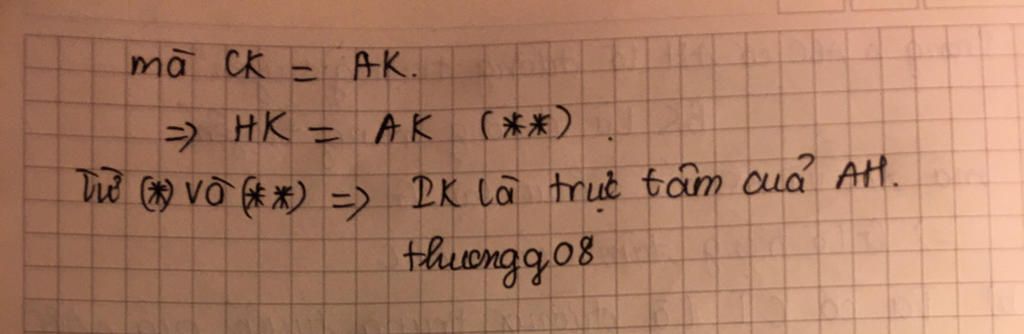 mà CK = AK.
=> HK = AK (**).
Từ (*) và (**) => IK là trực tâm cuả AH.
thuongg08